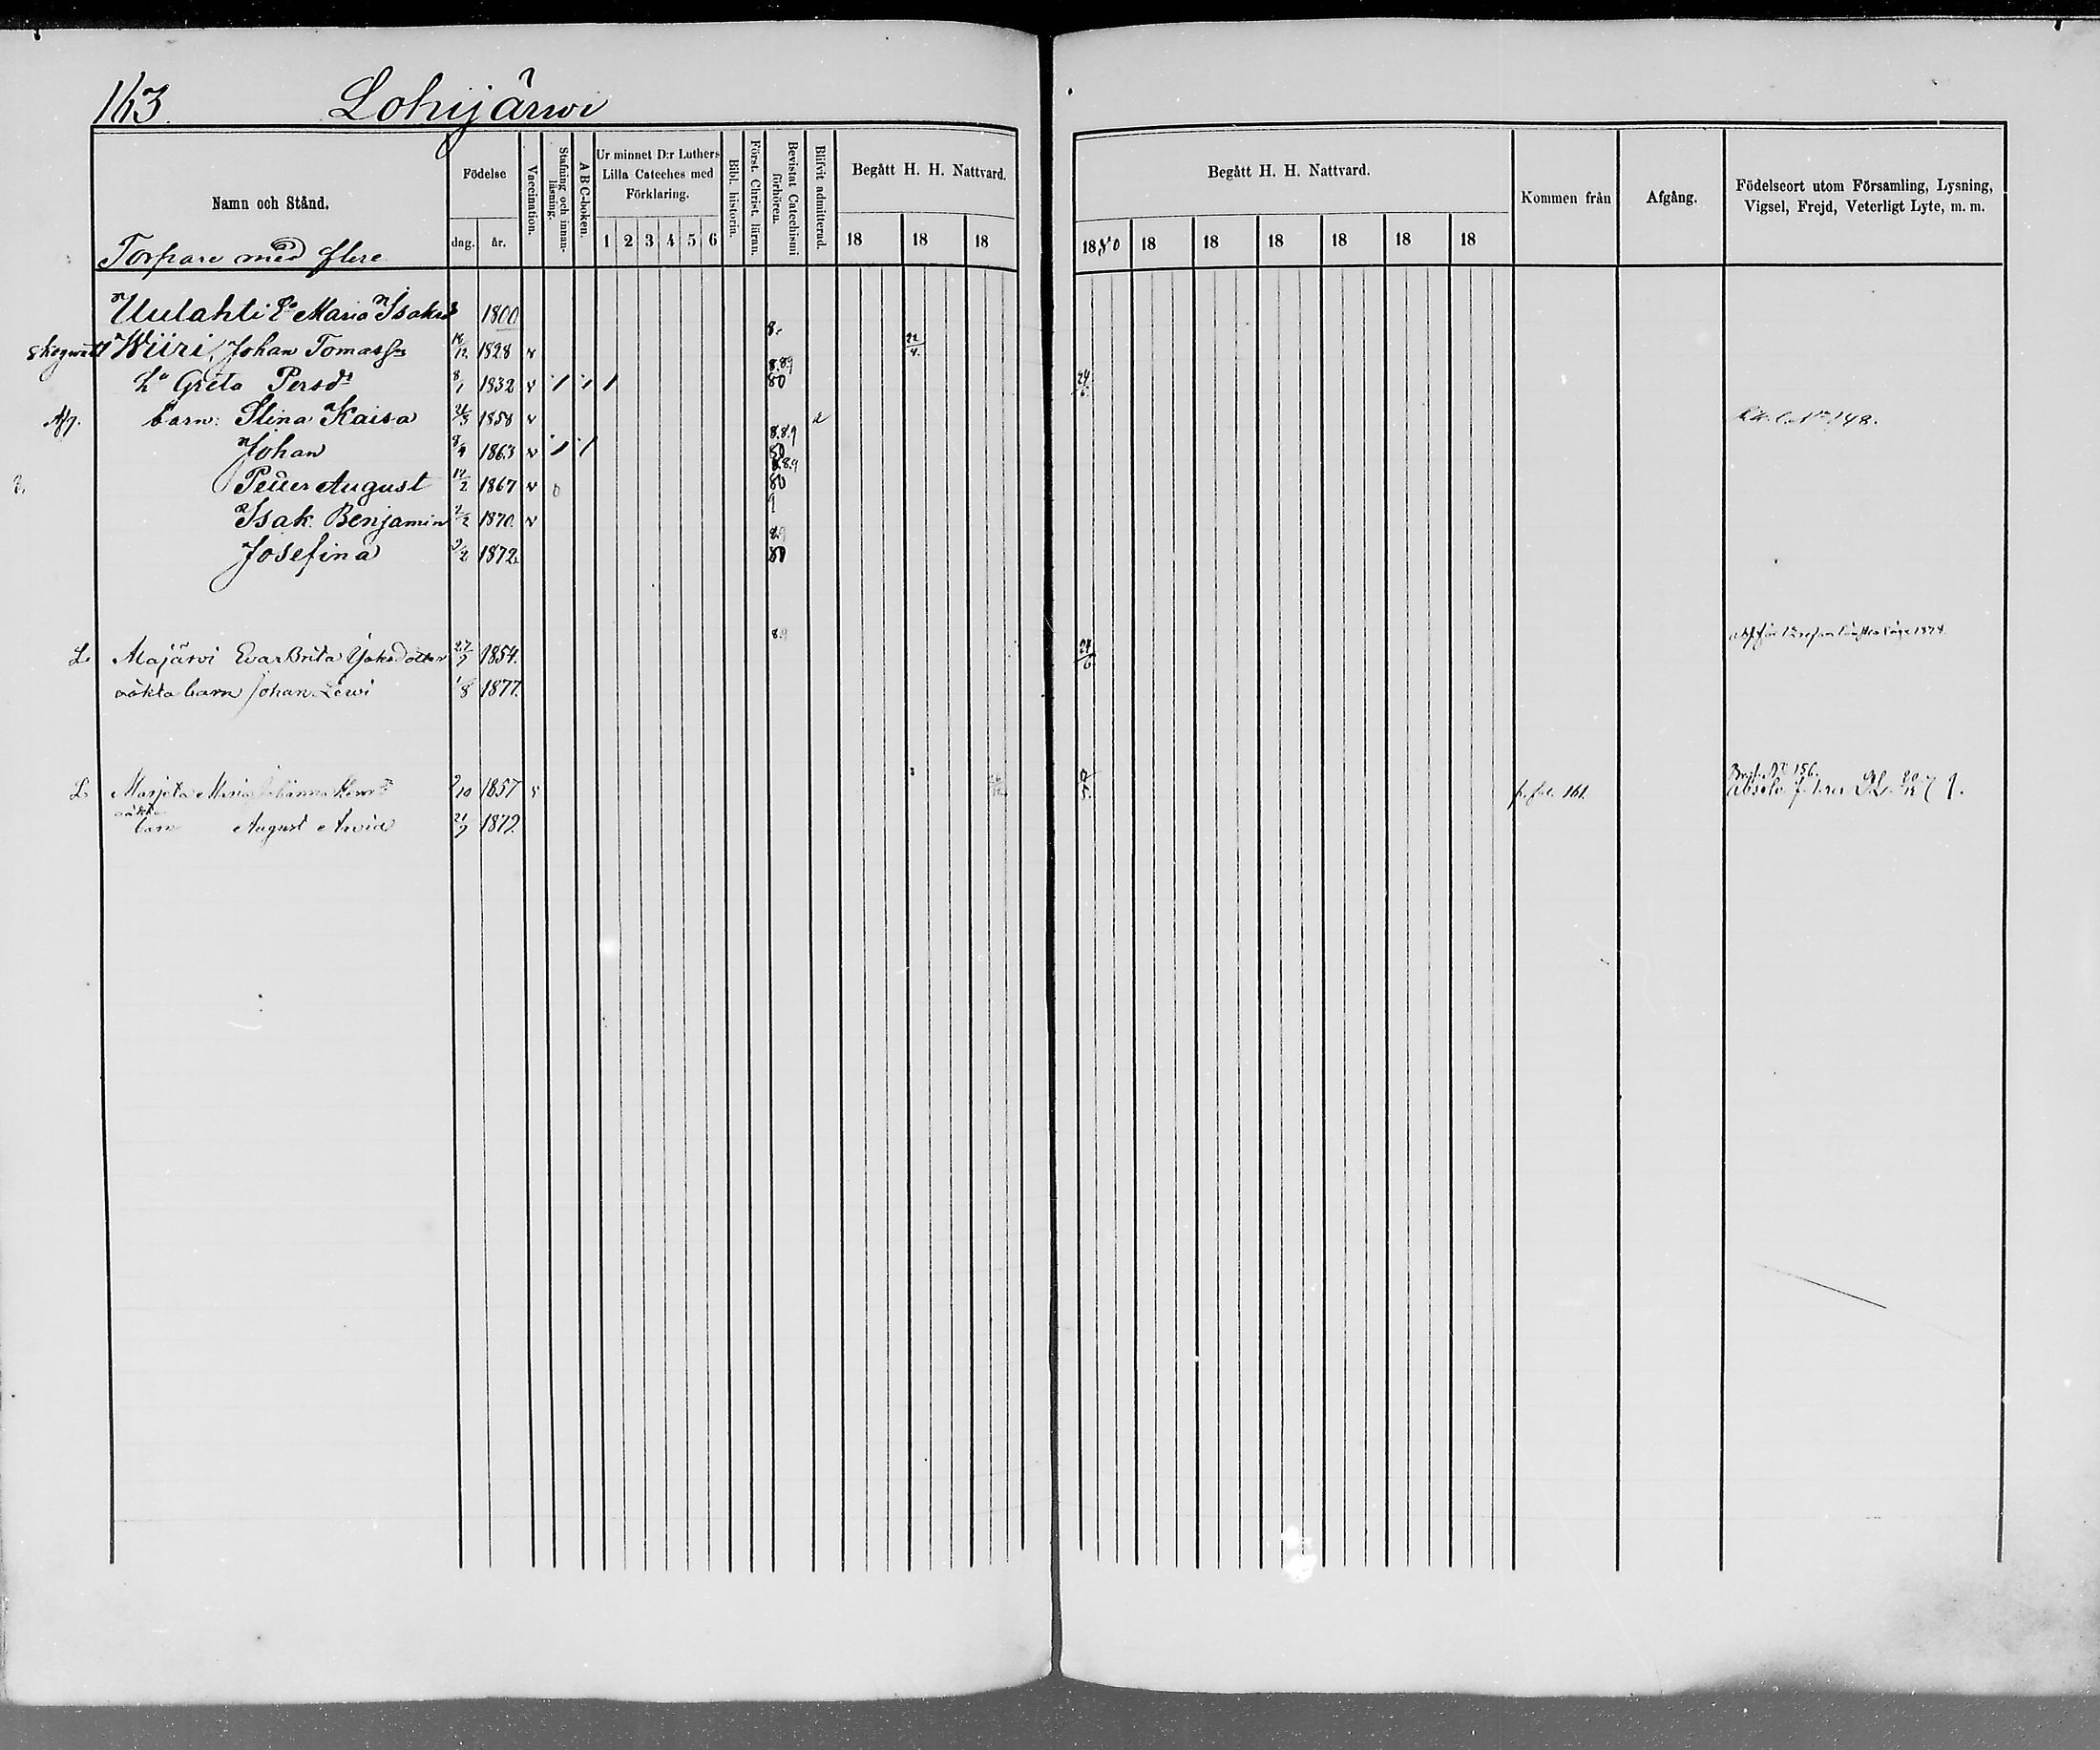 163. Lohijärwi
Namn och Stånd.
Födelse
dag. år.
Vaccination.
Stafning och innanläsning.
A B C-boken.
Ur minnet D:r Luthers Lilla Cateches med Förklaring.
1 2 3 4 5 6
Bibl. historin.
Först. Christ. läran.
Bevistat Catechismi förhören.
Blifvit admitterad.
Begått H. H. Nattvard.
18 18 18
Begått H. H. Nattvard.
1880 18 18 18 18 18 18
Kommen från
Afgång.
Födelseort utom Församling, Lysning, Vigsel, Frejd, Veterligt Lyte, m. m.
Torpare med flere
Uulahti Maria 1800
Wiiri, Johan Tomass 1828 v 22/4.
Greta Persd 8/1 1832 v 8.8.9 80 24/6
Afg. barn: Stina Kaisa 1858 v 148.
Johan 1863 v 8.8.9 80
Petter August 12/2 1867 v 8.8.9 80
Isak Benjamin 1870. v
Josefina 1872. 80
L. Majärvi Eva Brita 27/7 1854. 24/6
oäkta barn Johan Lewi 1/8 1877.
L. Marjeta Maria Johanna 2/10 1857 fr. fol. 161. N:o 156.
oäkta barn August Arvid 21/7 1879.